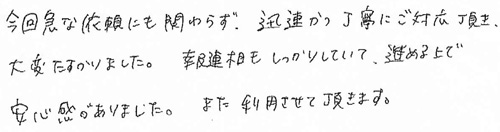 今回急な依頼にも関わらず、迅速かつ丁寧にご対応頂き、
大変たすかりました。 報連相もしっかりしていて、進める上で
安心感がありました。 また利用させて頂きます。